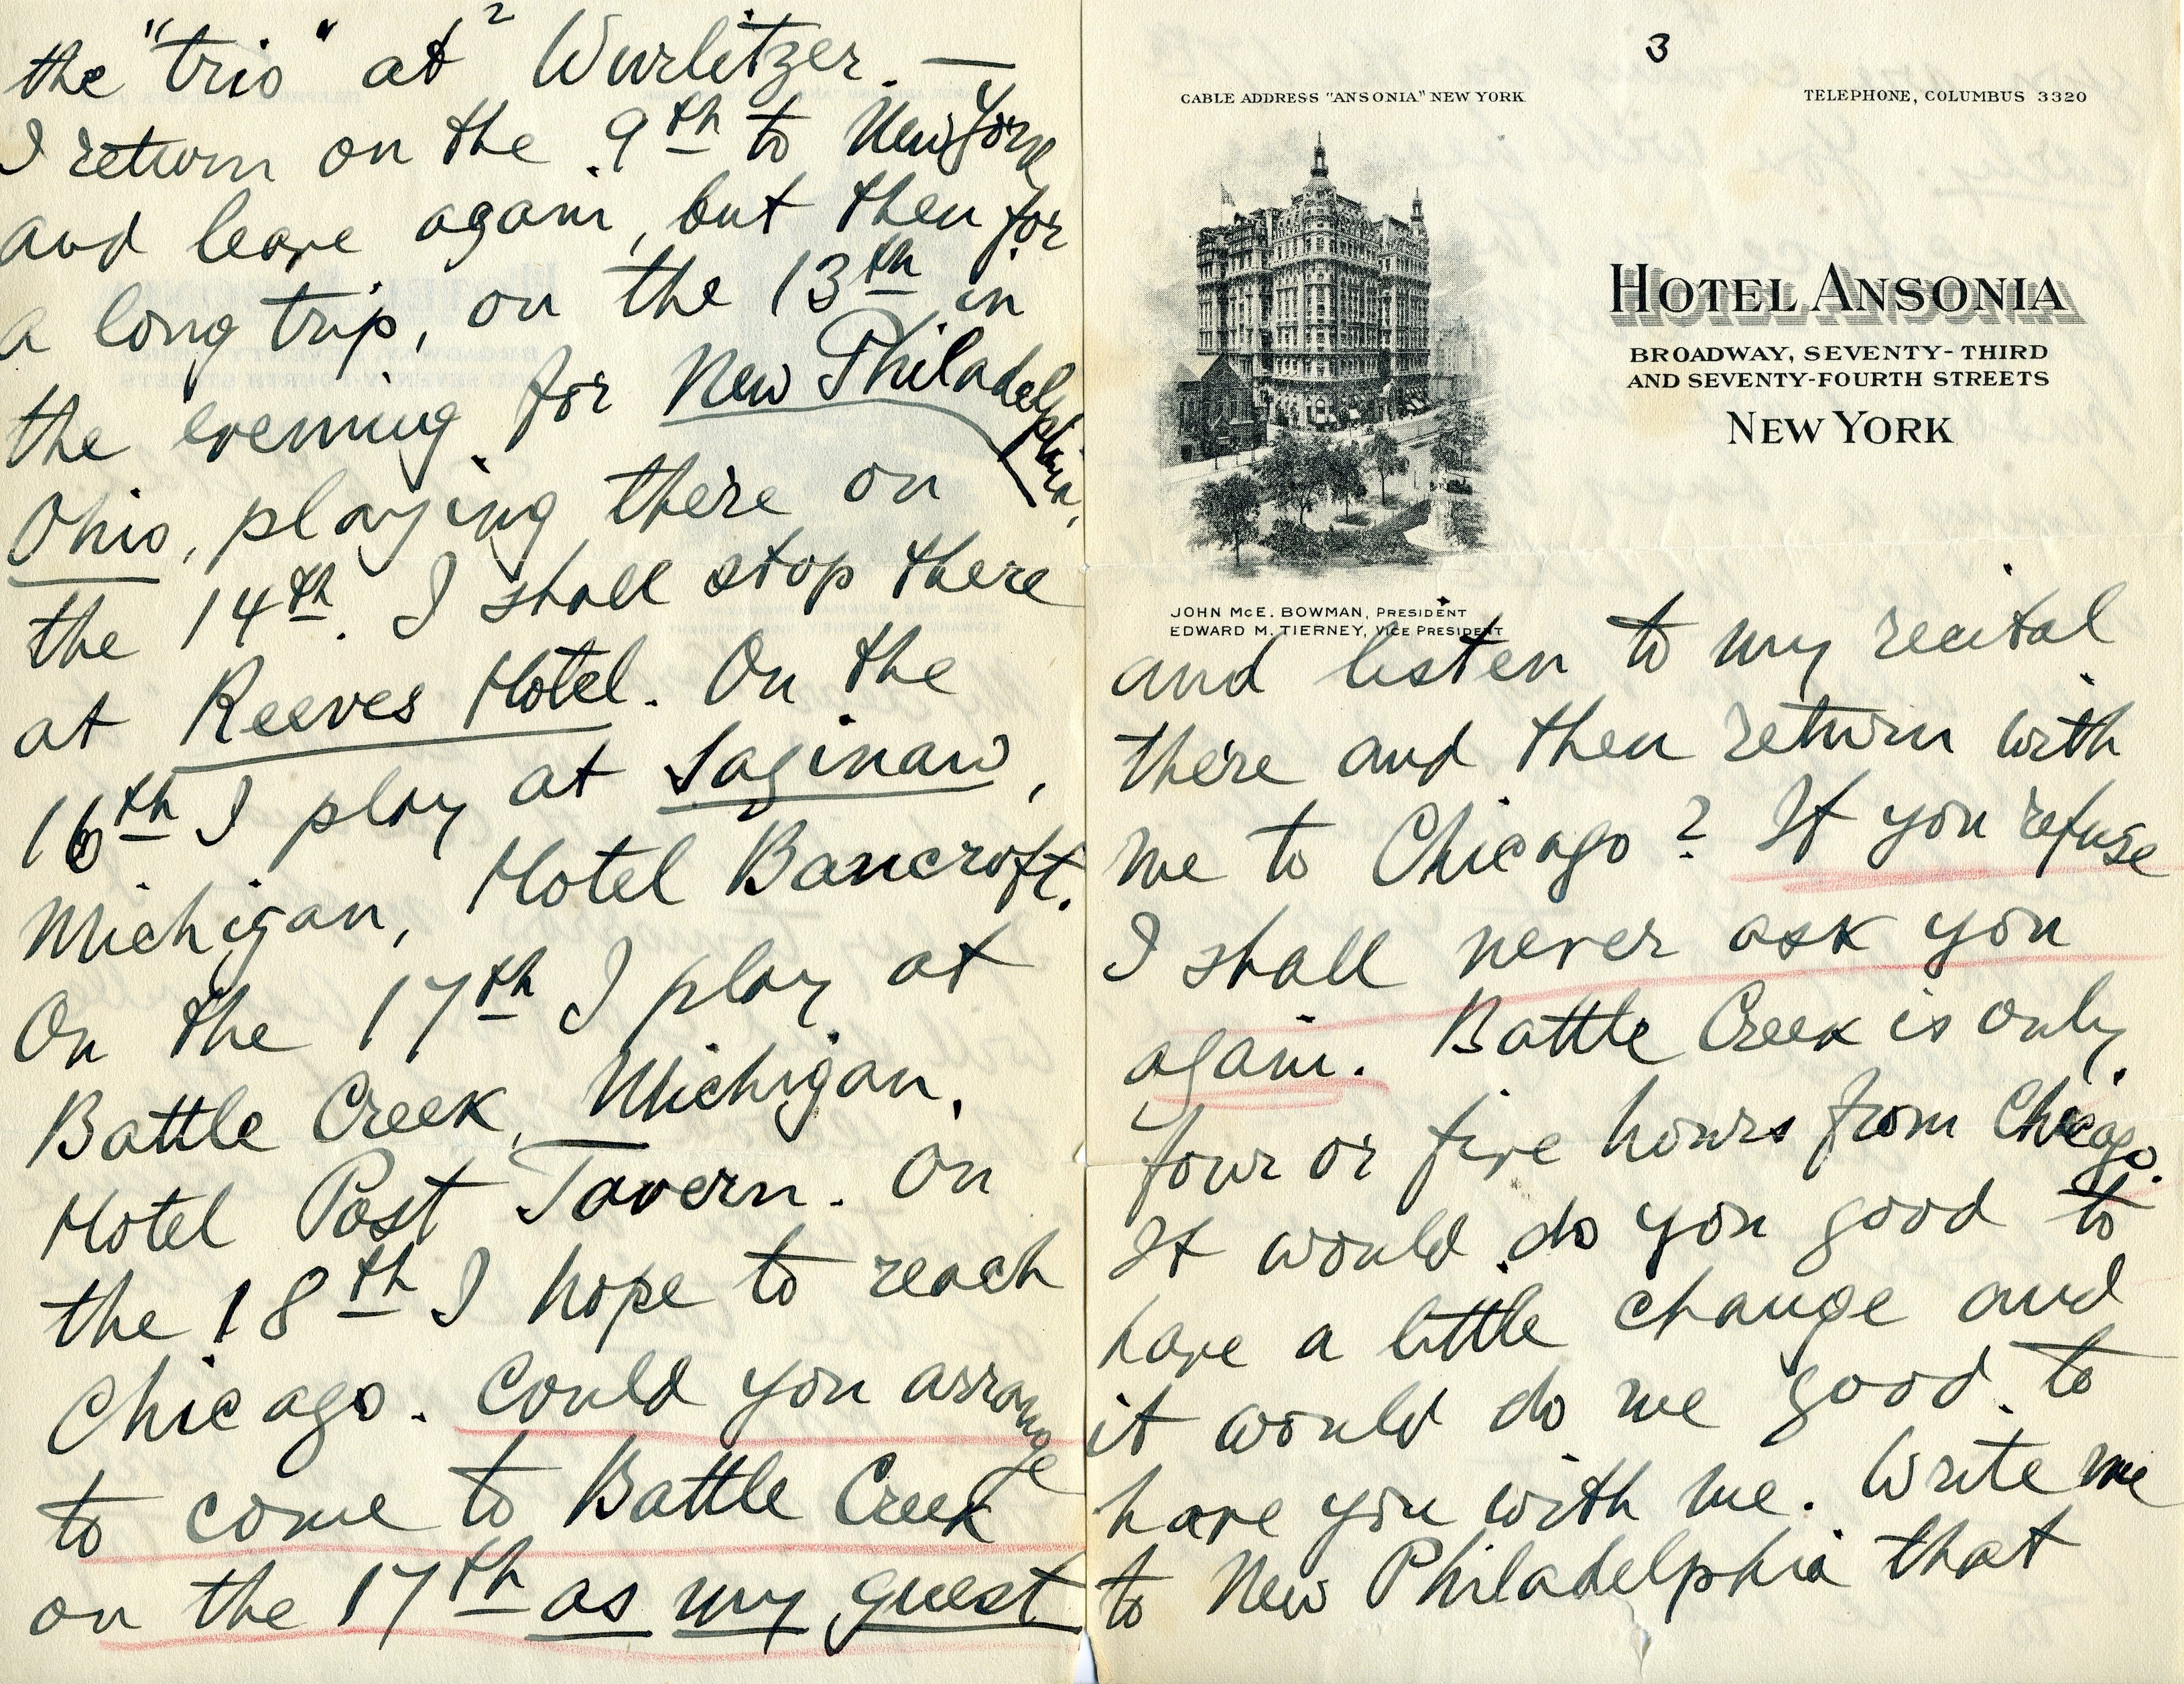 2
the "trio" at Wurlitzer. —
I return on the 9th to New York
and leave again, but then for
a long trip, on the 13th in
the evening for New Philadelphia,
Ohio, playing there on
the 14th. I shall stop there
at Reeves Hotel. On the
16th I play at Saginaw,
Michigan, Hotel Bancroft.
On the 17th I play at
Battle Creek, Michigan,
Hotel Post Tavern. On
the 18th I hope to reach
Chicago. Could you arrange
to come to Battle Creek
on the 17th as my guest
3
CABLE ADDRESS "ANSONIA" NEW YORK
TELEPHONE, COLUMBUS 3320
HOTEL ANSONIA
BROADWAY, SEVENTY-THIRD
AND SEVENTY-FOURTH STREETS
NEW YORK
JOHN McE. BOWMAN, PRESIDENT
EDWARD M. TIERNEY, VICE PRESIDENT
and listen to my recital
there and then return with
me to Chicago? If you refuse
I shall never ask you
again. Battle Creek is only
four or five hours from Chicago.
It would do you good to
have a little change and
it would do me good to
have you with me. Write me
to New Philadelphia that